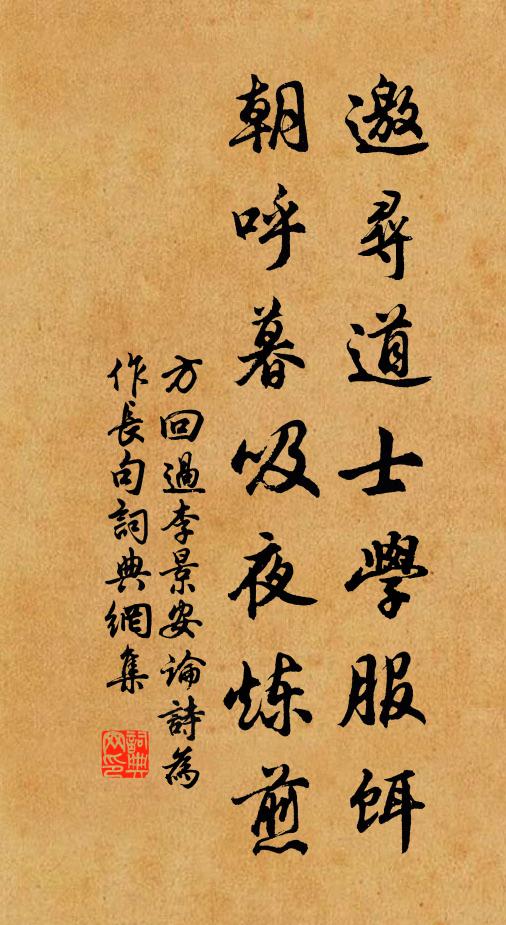 邀尋道士學服餌
朝呼暮吸夜炼煎
方回過李景安論詩為
作長句詞典網集
詞典網印